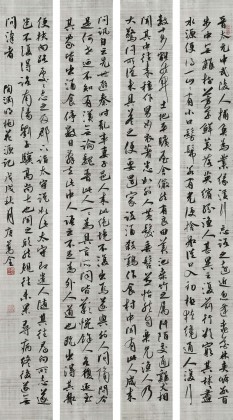 晉太元中武陵人捕魚為業緣溪行忘路之遠近忽逢桃花林夾岸數百
步中無雜樹芳草鮮美落英繽紛漁人甚異之復前行欲窮其林林盡
水源便得一山山有小口仿佛若有光便捨船從口入初極狹才通人復行
數十步豁然開朗土地平曠屋舍儼然有良田美池桑竹之屬阡陌交通雞犬相
聞其中往來種作男女衣著悉如外人黃髮垂髫並怡然自樂見漁人乃
大驚問所從來具答之便要還家設酒殺雞作食村中聞有此人咸來
問訊自云先世避秦時亂率妻子邑人來此絕境不復出焉遂與外人間隔問今
是何世乃不知有漢無論魏晉此人一一為具言所聞皆嘆惋餘人各復延至
其家皆出酒食停數日辭去此中人語云不足為外人道也既出得其船
便扶向路處處志之及郡下詣太守說如此太守即遣人隨其往尋向所志遂
迷不復得路南陽劉子驥高尚士也聞之欣然規往未果尋病終後遂無
問津者
陶淵明桃花源記 戊戌秋月